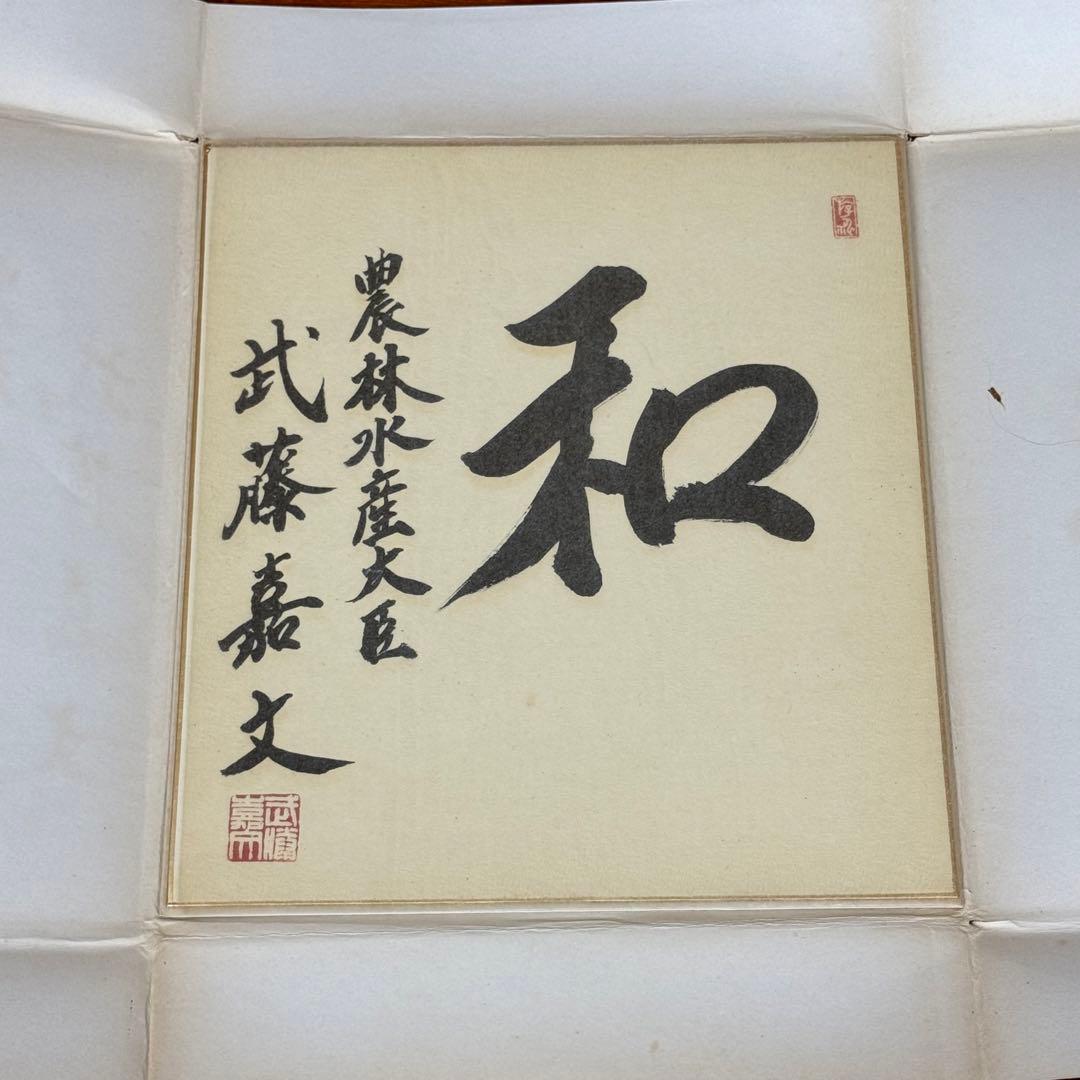 和
農林水産大臣
武藤嘉文
武藤
嘉文